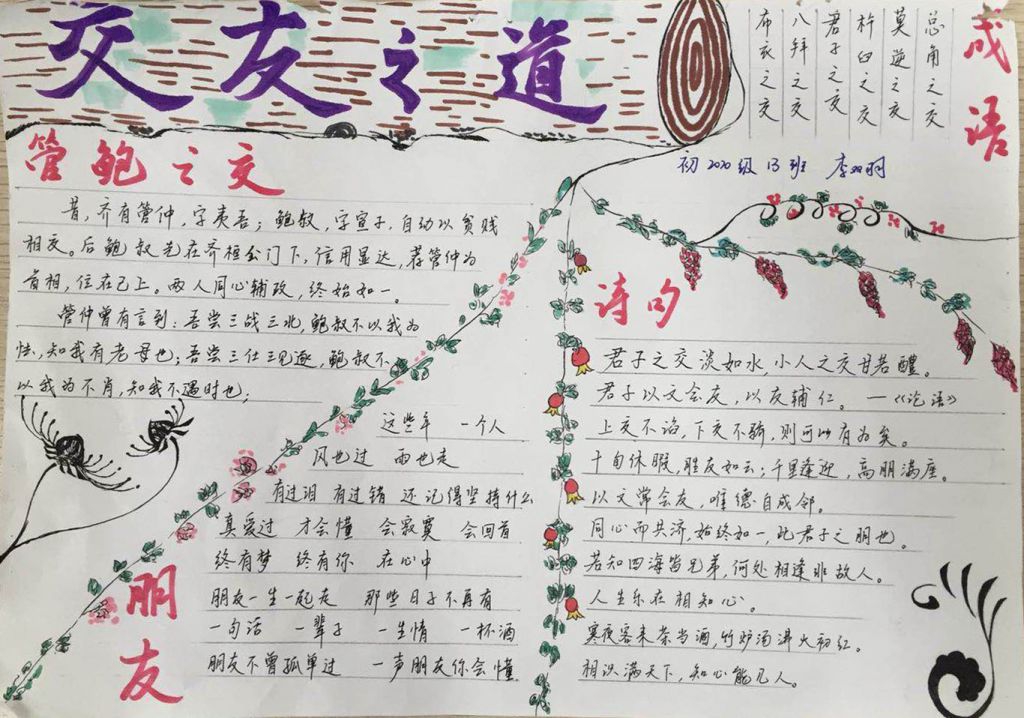 交友之道
成语
总角之交
莫逆之交
杵臼之交
君子之交
八拜之交
布衣之交
初2020级13班 李
管鲍之交
昔,齐有管仲,字夷吾;鲍叔,字宣子,自动以贫贱
相交。后鲍叔先在齐桓公门下,信用显达,荐管仲为
首相,位在己上。两人同心辅政,终始如一。
管仲曾有言到:吾尝三战三北,鲍叔不以我为
怯,知我有老母也;吾尝三仕三见逐,鲍叔不
以我为不肖,知我不遇时也;
朋友
这些年 一个人
风也过 雨也走
有过泪 有过错 还记得坚持什么
真爱过 才会懂 会寂寞 会回首
终有梦 终有你 在心中
朋友一生一起走 那些日子不再有
一句话 一辈子 一生情 一杯酒
朋友不曾孤单过 一声朋友你会懂
诗句
君子之交淡如水,小人之交甘若醴。
君子以文会友,以友辅仁。—《论语》
上交不谄,下交不骄,则可以有为矣。
十旬休暇,胜友如云;千里逢迎,高朋满座。
以文常会友,唯德自成邻。
同心而共济,始终如一,此君子之朋也。
若知四海皆兄弟,何处相逢非故人。
人生乐在相知心。
寒夜客来茶当酒,竹炉汤沸火初红。
相识满天下,知心能几人。